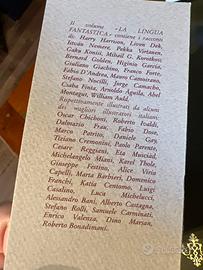 Il volume «LA LINGUA
FANTASTICA» contiene i racconti
di: Harry Harrison, Lieon Dek,
István Nemere, Pekka Virtanen,
Gaku Konisi, Mihail G. Korotkov,
Bernard Golden, Higinio García,
Giuliano Giachino, Franco Forte,
Fabio D'Andrea, Mauro Camorani,
Stefano Nucilli, Jorge Camacho,
Csaba Finta, Arnoldo Águila, Abel
Montagut, William Auld.
Rispettivamente illustrati da alcuni
dei migliori illustratori italiani:
Oscar Chichoni, Roberto Ivaldi,
Dalmazio Frau, Fabio Dore,
Marco Patrito, Daniele Gay,
Tiziano Cremonini, Paolo Parente,
Cesare Reggiani, Eta Musciad,
Michelangelo Miani, Karel Thole,
Giuseppe Festino, Alice Viria
Capelli, Marta Barbieri, Domenico
Franchi, Katia Centomo, Luigi
Casalino, Luca Michelucci,
Alessandro Bani, Alberto Castagna,
Stefano Rolli, Samuele Carminati,
Enrico Valenza, Dino Marsan,
Roberto Bonadimani.